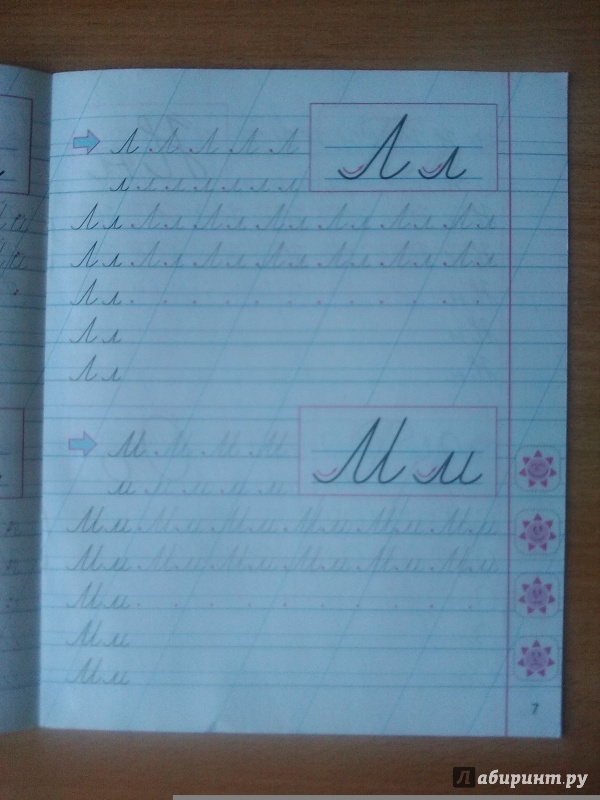 Л Л Л Л Л
Л л
л л л л л л л
Л л Л л Л л Л л Л л Л л Л л
Л л Л л Л л Л л Л л Л л Л л
Л л
Л л
Л л
М М М М
М м
м м м м м
М м М м М м М м М м М м
М м М м М м М м М м М м
М м
М м
М м
7
Лабиринт.ру